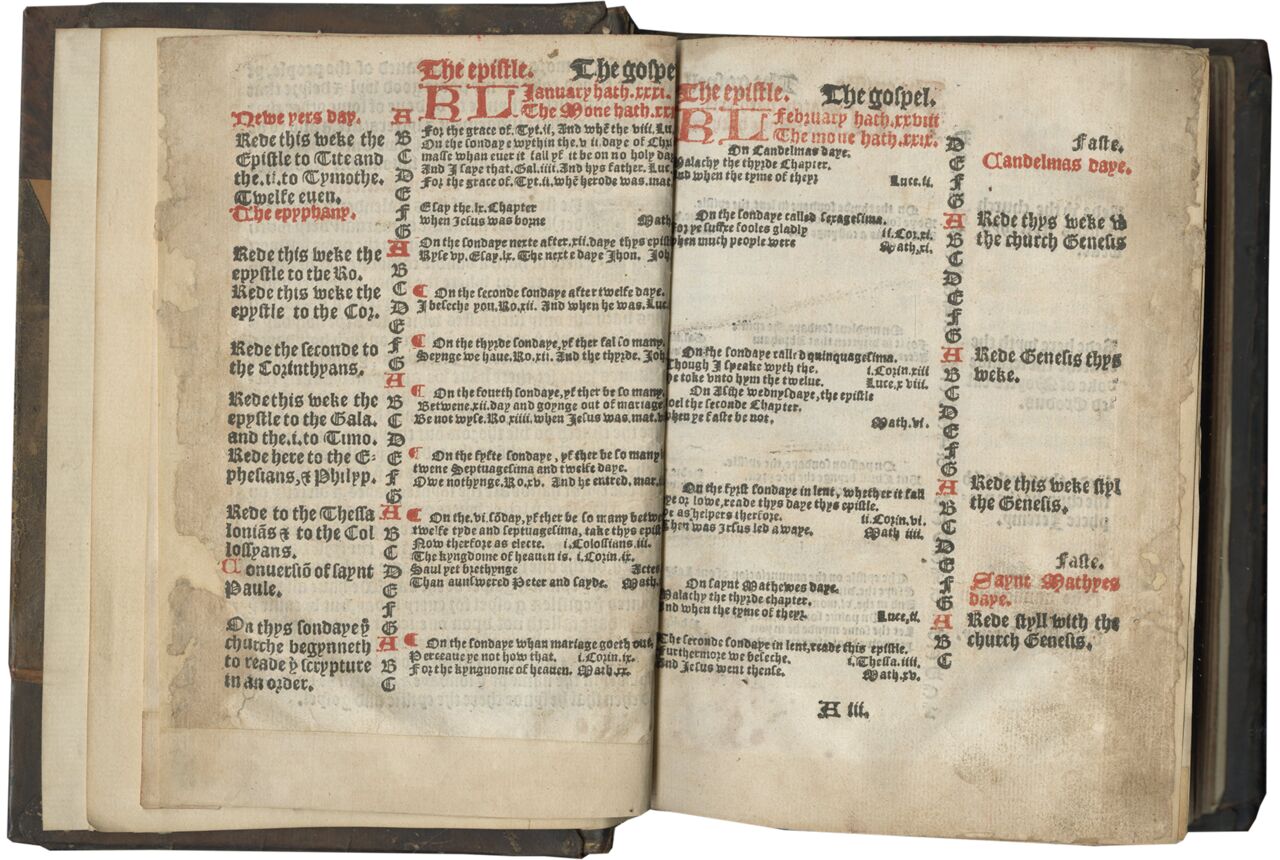 The epistle. The gospe
January hath.xxxi.
BL The Mone hath.xxx
Newe yers day.
Rede this weke the
Epistle to Tite and
the.ii.to Tymothe.
Twelfe euen.
The epyphany.
Rede this weke the
epystle to the Ro.
Rede this weke the
epystle to the Cor.
Rede the seconde to
the Corinthyans.
Rede this weke the
epystle to the Gala.
and the.i.to Timo.
Rede here to the E-
phesians,& Philpp.
Rede to the Thessa
loniãs & to the Col
lossyans.
Conuersiõ of saynt
Paule.
On thys sondaye ye
churche begynneth
to reade ye scrypture
in an order.
A
B
C
D
E
F
G
A
B
C
D
E
F
G
A
B
C
D
E
F
G
A
B
C
D
E
F
G
A
B
C
For the grace of.Tyt.ii, And whẽ the viii.Lu.
On the sondaye wythin the.v ii.daye of Chri
masse whan euer it fall yf it be on no holy da
And I saye that.Gal.iiii.And hys father. Luc.
For the grace of.Tyt.ii.whẽ herode was.mat.
Esay the.lx.Chapter
when Jesus was borne Math
On the sondaye nexte after.xii.daye thys epist
Ryse vp. Esay.lx. The nexte daye Jhon. Joh
On the seconde sondaye after twelfe daye.
I beseche you.Ro.xii. And when he was.Luc.
On the thyrde sondaye,yf ther fal so many
Seynge we haue.Ro.xii. And the thyrde. Joh
On the fourth sondaye,yf ther be so many
Betwene.xii.day and goynge out of mariage
Be not wyse.Ro.xiiii.when Jesus was.mat.
On the fyfte sondaye , yf ther be so many
twene Septuagesima and twelfe daye.
Owe nothynge.Ro.xv. And he entred, mar.
On the.vi.sõday,yf ther be so many betwe
twelfe tyde and septuagesima, take thys epist
Now therfore as electe. i.Colossians.iii.
The kyngdome of heauen is. i.Corin.ix.
Saul yet brethynge Actes
Than aunswered Peter and sayde. Math.
On the sondaye whan mariage goeth out,
Perceaue ye not how that. i.Corin.ix.
For the kyngnome of heauen. Math.xx.
The epistle. The gospel.
February hath.xxviii
BL The mone hath.xxix.
On Candelmas daye.
Malachy the thyrde Chapter.
And when the tyme of theyr Luce.ii.
On the sondaye called sexagesima.
For ye suffre fooles gladly ii.Cor.xi.
when much people were Math.xi.
On the sondaye called quinquagesima.
Though I speake wyth the. i.Corin.xiii
he toke vnto hym the twelue. Luce.x viii.
On Asche wednysdaye,the epistle
Joel the seconde Chapter.
when ye faste be not. Math.vi.
On the fyrst sondaye in lent, whether it fall
hye or lowe,reade thys daye thys epistle.
ye as helpers therfore. ii.Corin.vi.
Then was Jesus led a waye. Math iiii.
On saynt Mathewes daye.
Malachy the thyrde chapter.
And when the tyme of theyr. Luce,ii.
The seconde sondaye in lent,reade this epistle.
Furthermore we beseche. i.Thessa.iiii.
And Jesus went thense. Math.xv.
A iii.
D
E
F
G
A
B
C
D
E
F
G
A
B
C
D
E
F
G
A
B
C
D
E
F
G
A
B
C
Faste.
Candelmas daye.
Rede thys weke in
the church Genesis
Rede Genesis thys
weke.
Rede this weke styl
the Genesis.
Faste.
Saynt Mathyes
daye.
Rede styll with the
church Genesis.